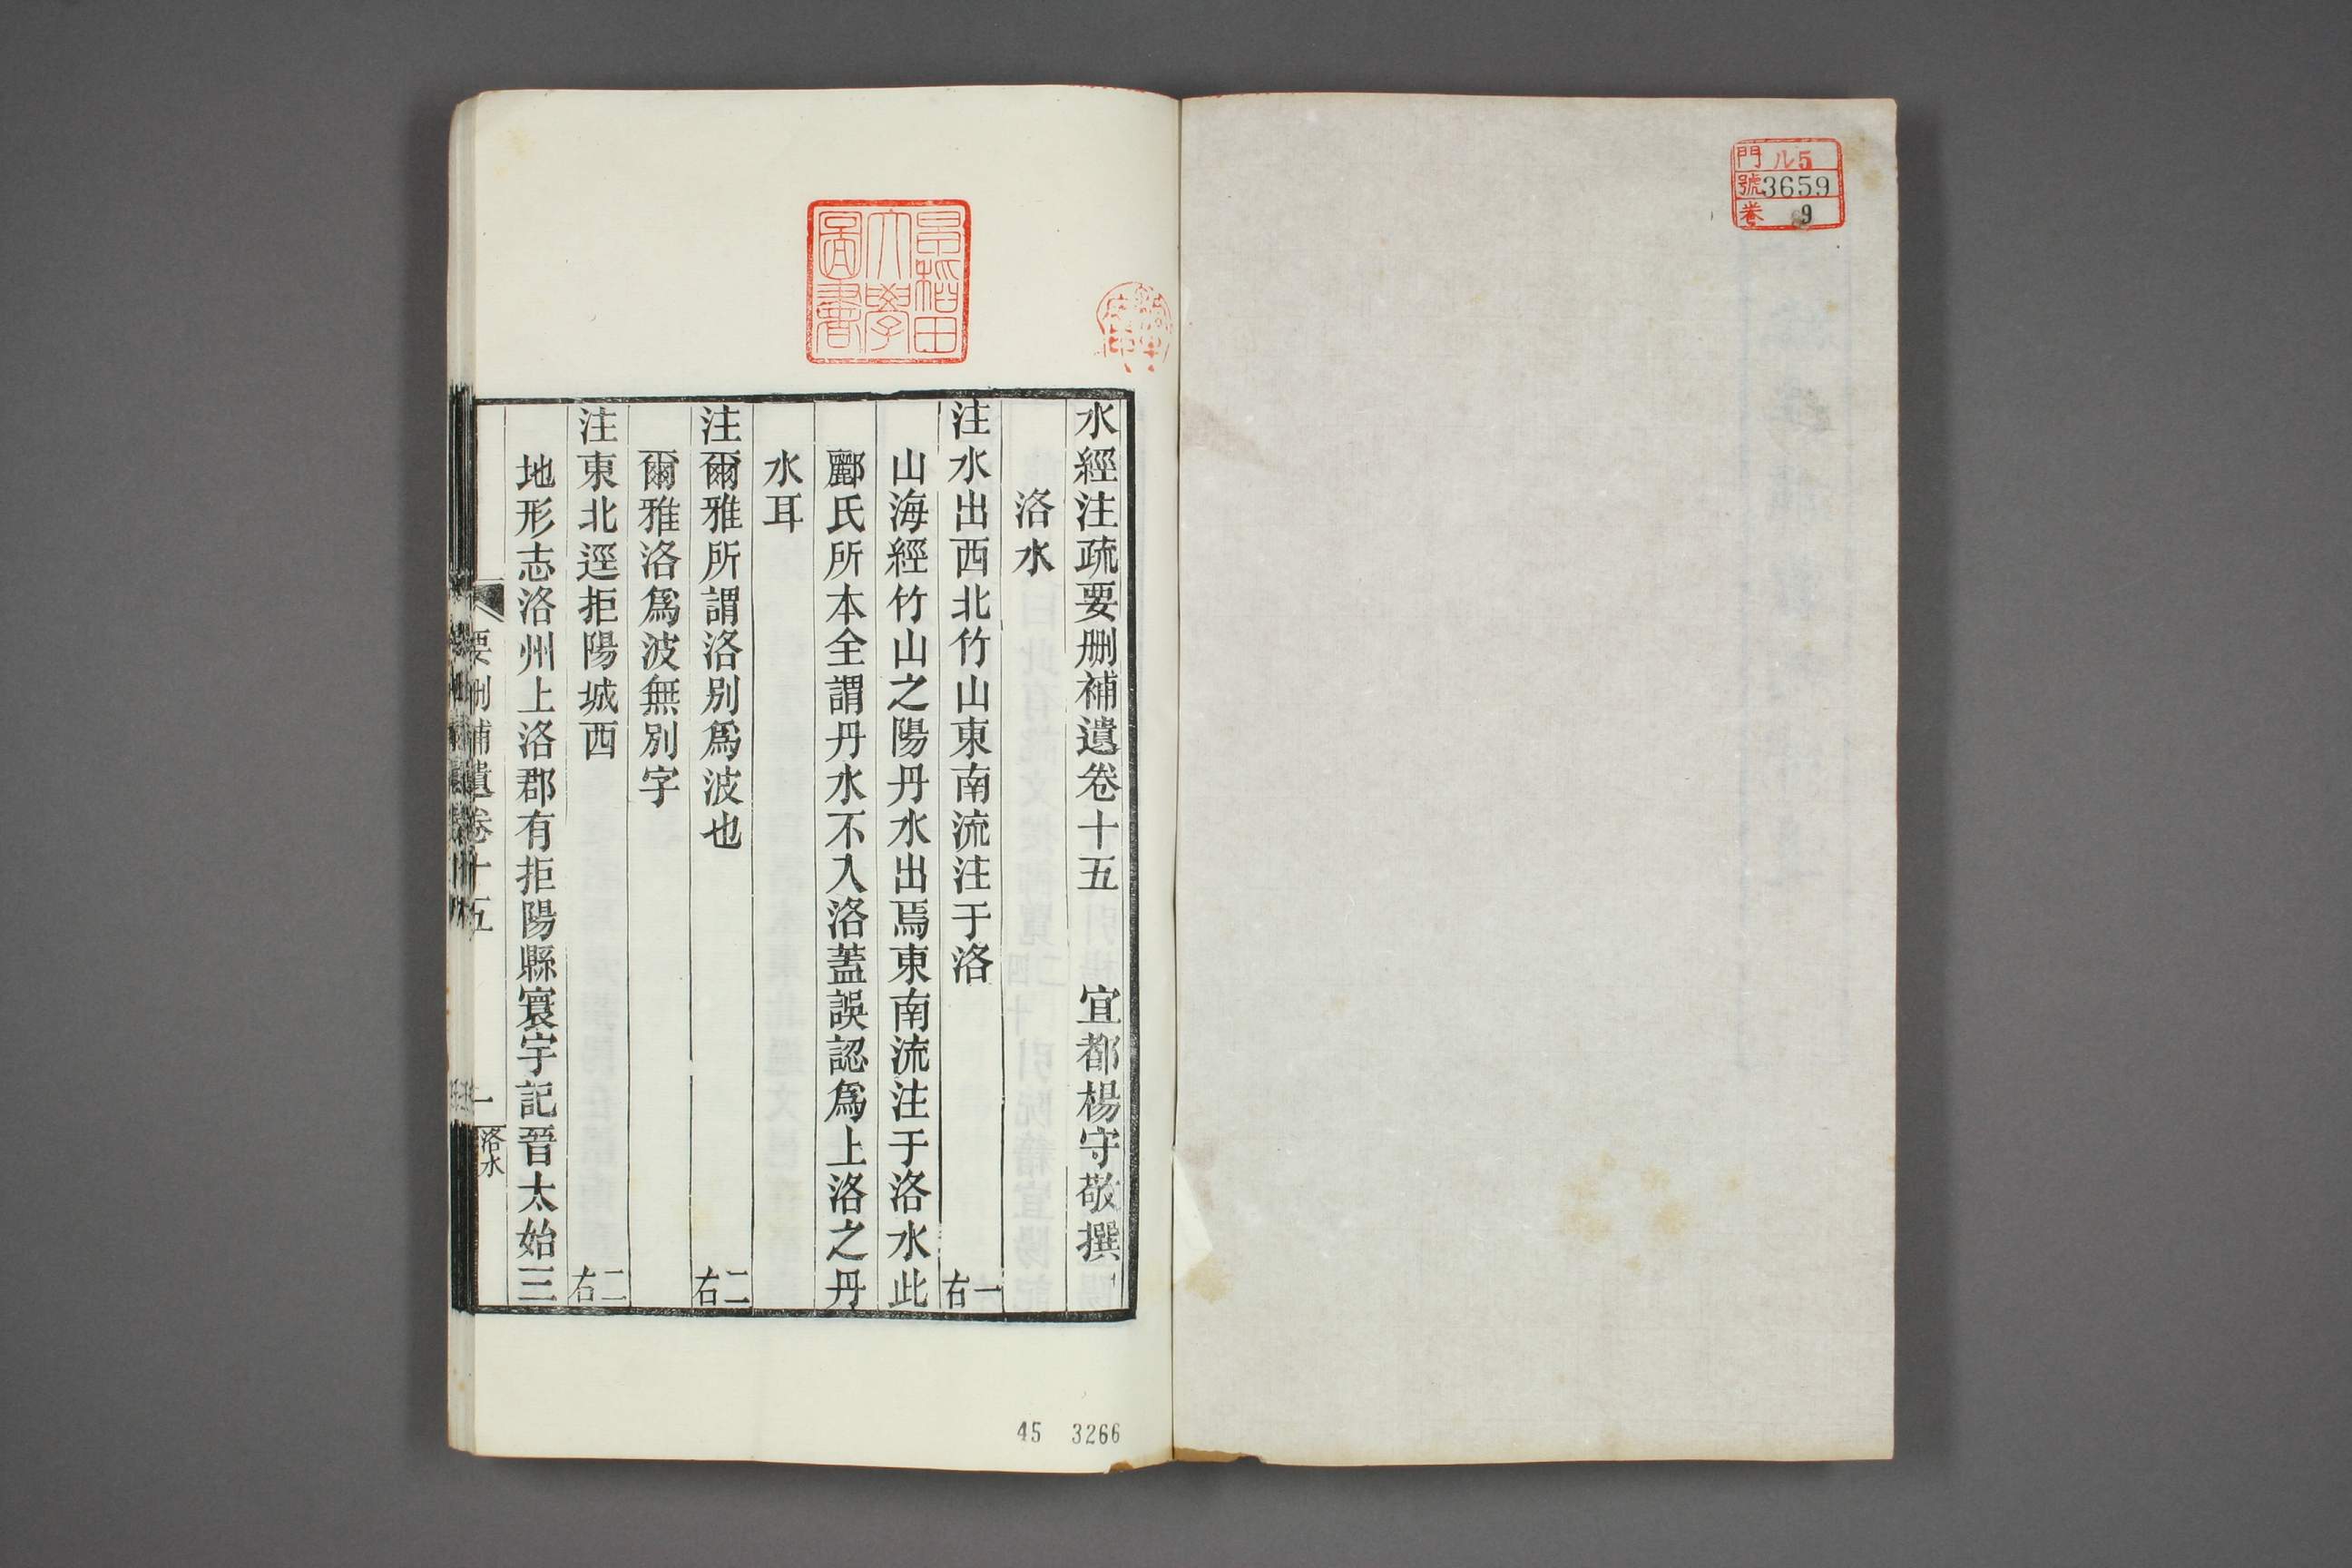 門 ル5
號 3659
卷 9
早稻田
大學
圖書
水經注疏要刪補遺卷十五 宜都楊守敬撰
洛水
注水出西北竹山東南流注于洛 一右
山海經竹山之陽丹水出焉東南流注于洛水此
酈氏所本全謂丹水不入洛蓋誤認爲上洛之丹
水耳
注爾雅所謂洛別爲波也 二右
爾雅洛爲波無別字
注東北逕拒陽城西 二右
地形志洛州上洛郡有拒陽縣寰宇記晉太始三
要刪補遺卷十五 一 洛水
45 3266